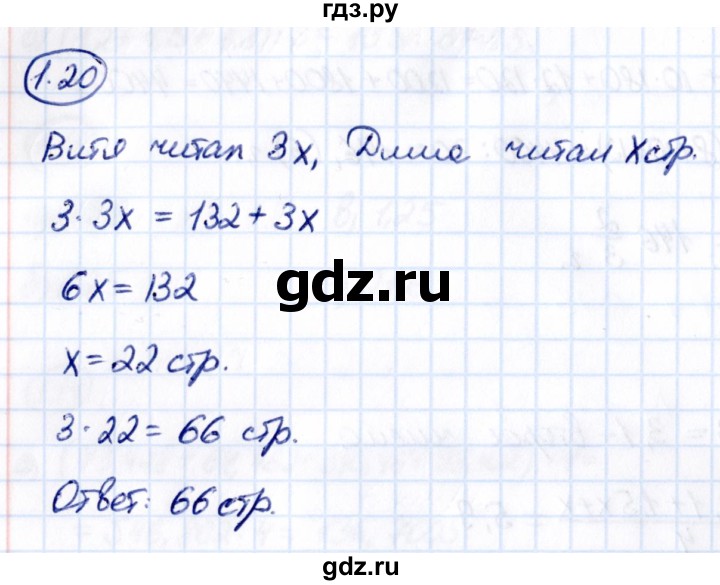 гдз.ру
1.20
Витя читал 3x, Дима читал x стр.
3·3x = 132 + 3x
6x = 132
gdz.ru
x = 22 стр.
3·22 = 66 стр.
Ответ: 66 стр.
gdz.ru